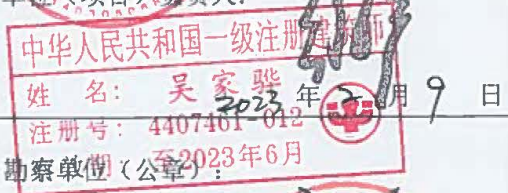 单位项目负责人：
中华人民共和国一级注册建筑师
姓 名： 吴家骅
2023 年 2 月 9 日
注册号： 4407461-012
至2023年6月
勘察单位（公章）：